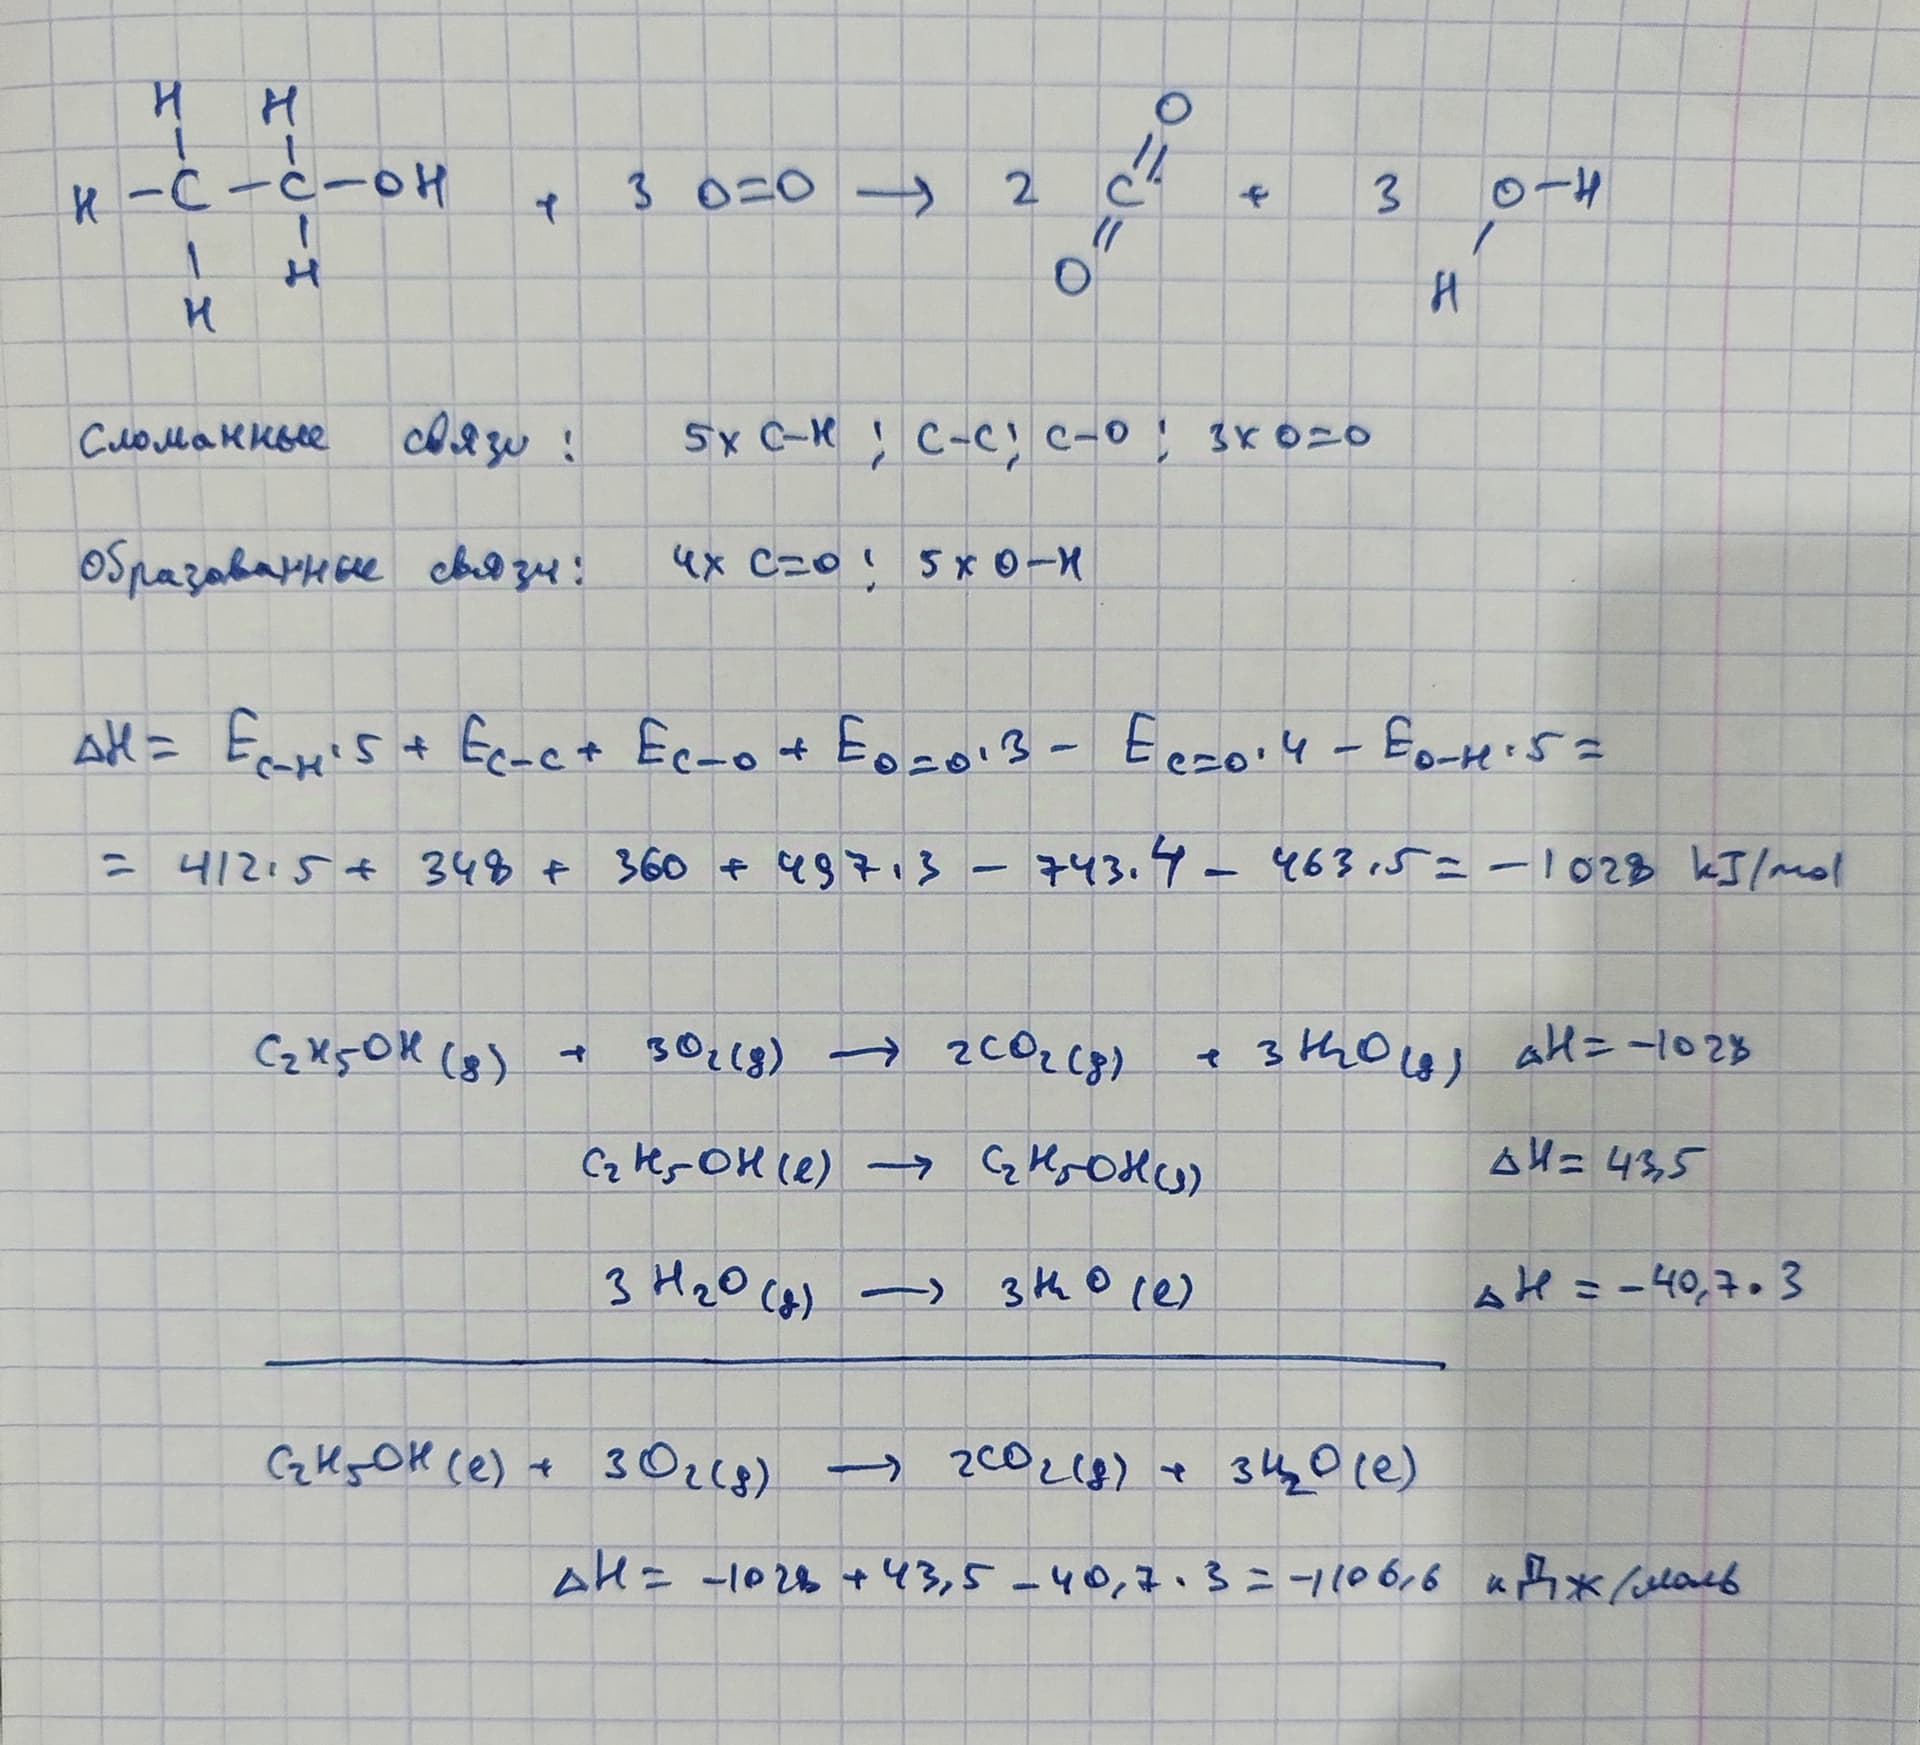 H H
H – C – C – OH + 3 O=O → 2 C + 3 O–H
O
O
H H
H
Сломанные связи: 5x C–H ; C–C; C–O ; 3x O=O
Образованные связи: 4x C=O ; 5x O–H
ΔH = E_C–H·5 + E_C–C + E_C–O + E_O=O·3 – E_C=O·4 – E_O–H·5 =
= 412·5 + 348 + 360 + 497·3 – 743·4 – 463·5 = –1028 kJ/mol
C₂H₅OH(g) + 3O₂(g) → 2CO₂(g) + 3H₂O(g) ΔH = –1028
C₂H₅OH(l) → C₂H₅OH(g) ΔH = 43,5
3H₂O(g) → 3H₂O(l) ΔH = –40,7·3
C₂H₅OH(l) + 3O₂(g) → 2CO₂(g) + 3H₂O(l)
ΔH = –1028 + 43,5 – 40,7·3 = –1106,6 кДж/моль